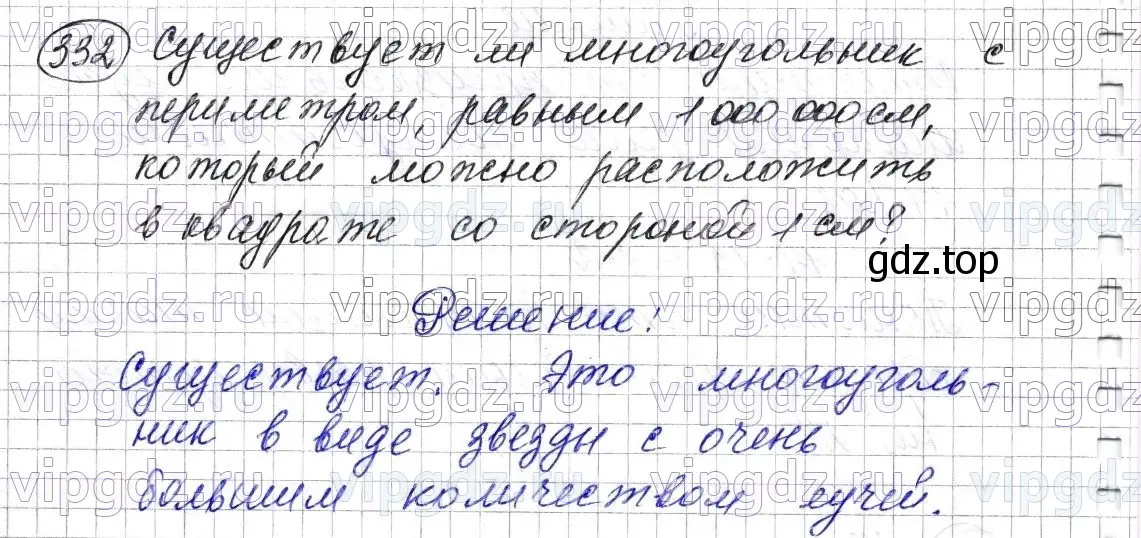 332 Существует ли многоугольник с
периметром, равным 1 000 000 см,
который можно расположить
в квадрате со стороной 1 см?
gdz.top
Решение:
Существует. Это многоуголь-
ник в виде звезды с очень
большим количеством лучей.
vipgdz.ru